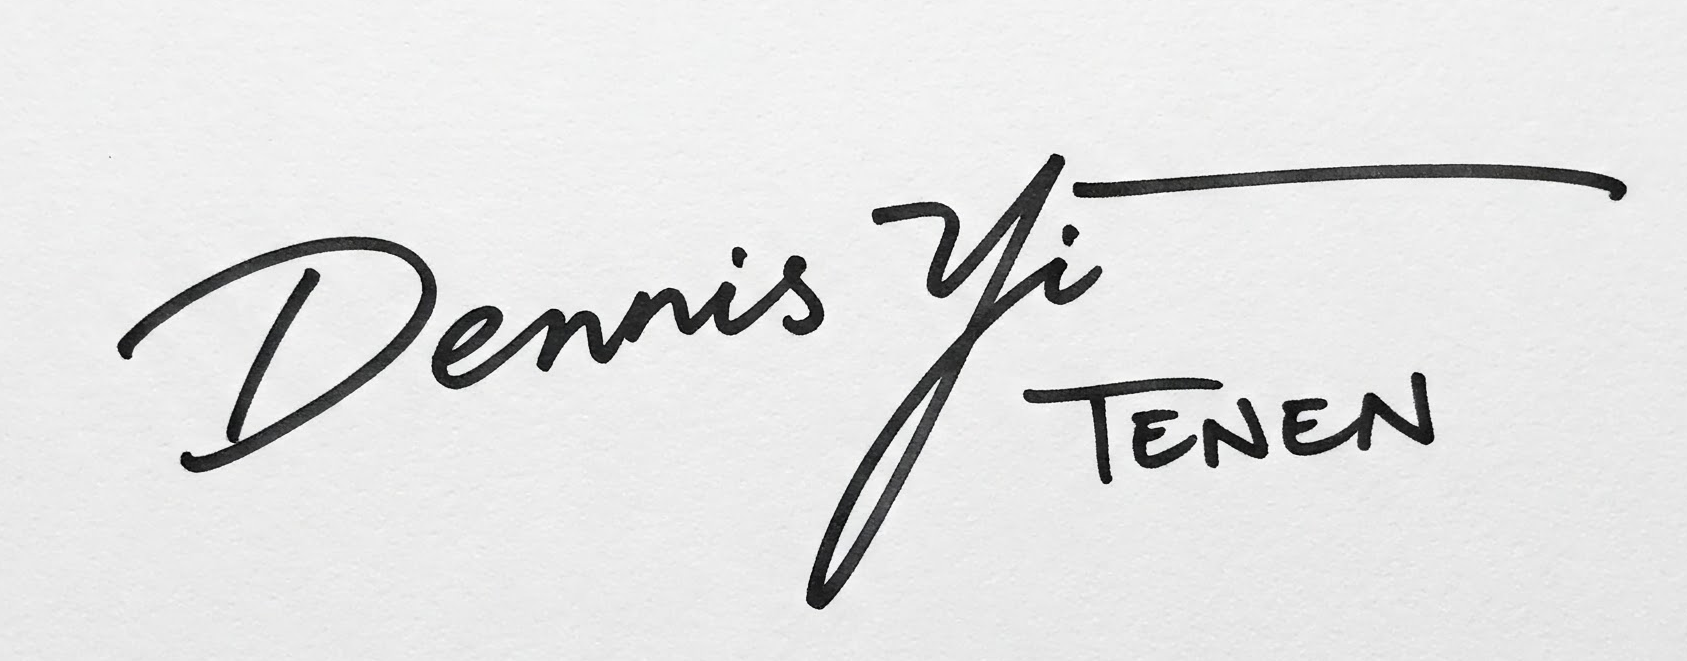 Dennis Yi
TENEN